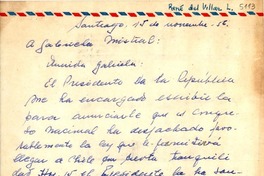 René del Villar L. 5113
Santiago, 15 de noviembre - 56.
A Gabriela Mistral:
Querida Gabriela:
El Presidente de la República
me ha encargado escribirle
para anunciarle que el Congre
so Nacional ha despachado fav
rablemente la ley que le permitirá
llegar a Chile con cierta tranquili
dad. Hoy 15 el Presidente la ha san-